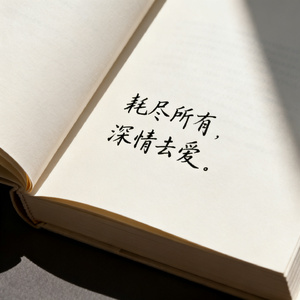 耗尽所有，
深情去爱。